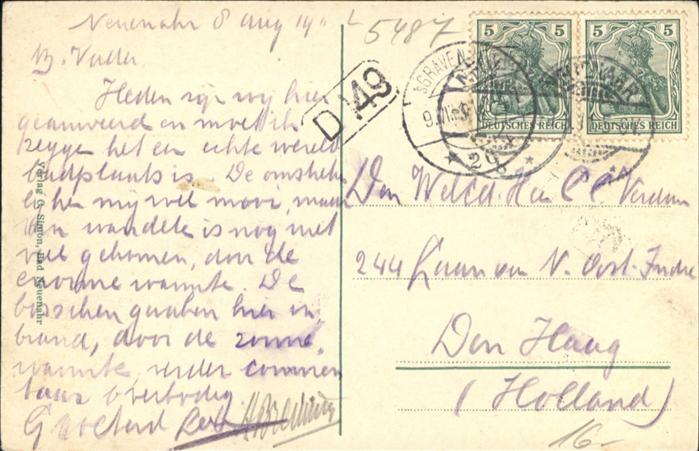 Neuenahr 8 Aug 19
5487
B. Vader
Heden zijn wij hier
gearriveerd en moet ik
zegge het een echte wereld
badplaats is. De omstreken
mij wel mooi, maar
van wandele is nog niet
veel gekomen, door de
enorme warmte. De
bosschen geraken hier in
brand, door de zonne
warmte, verder commen
taar overbodig
Gegroeterd
Verlag G. Simon, Bad Neuenahr
D 149
5 5
5 5
DEUTSCHES REICH
DEUTSCHES REICH
Den Heer C. C. Verdam
244 Laan van N. Oost. Indie
Den Haag
(Holland)
16-